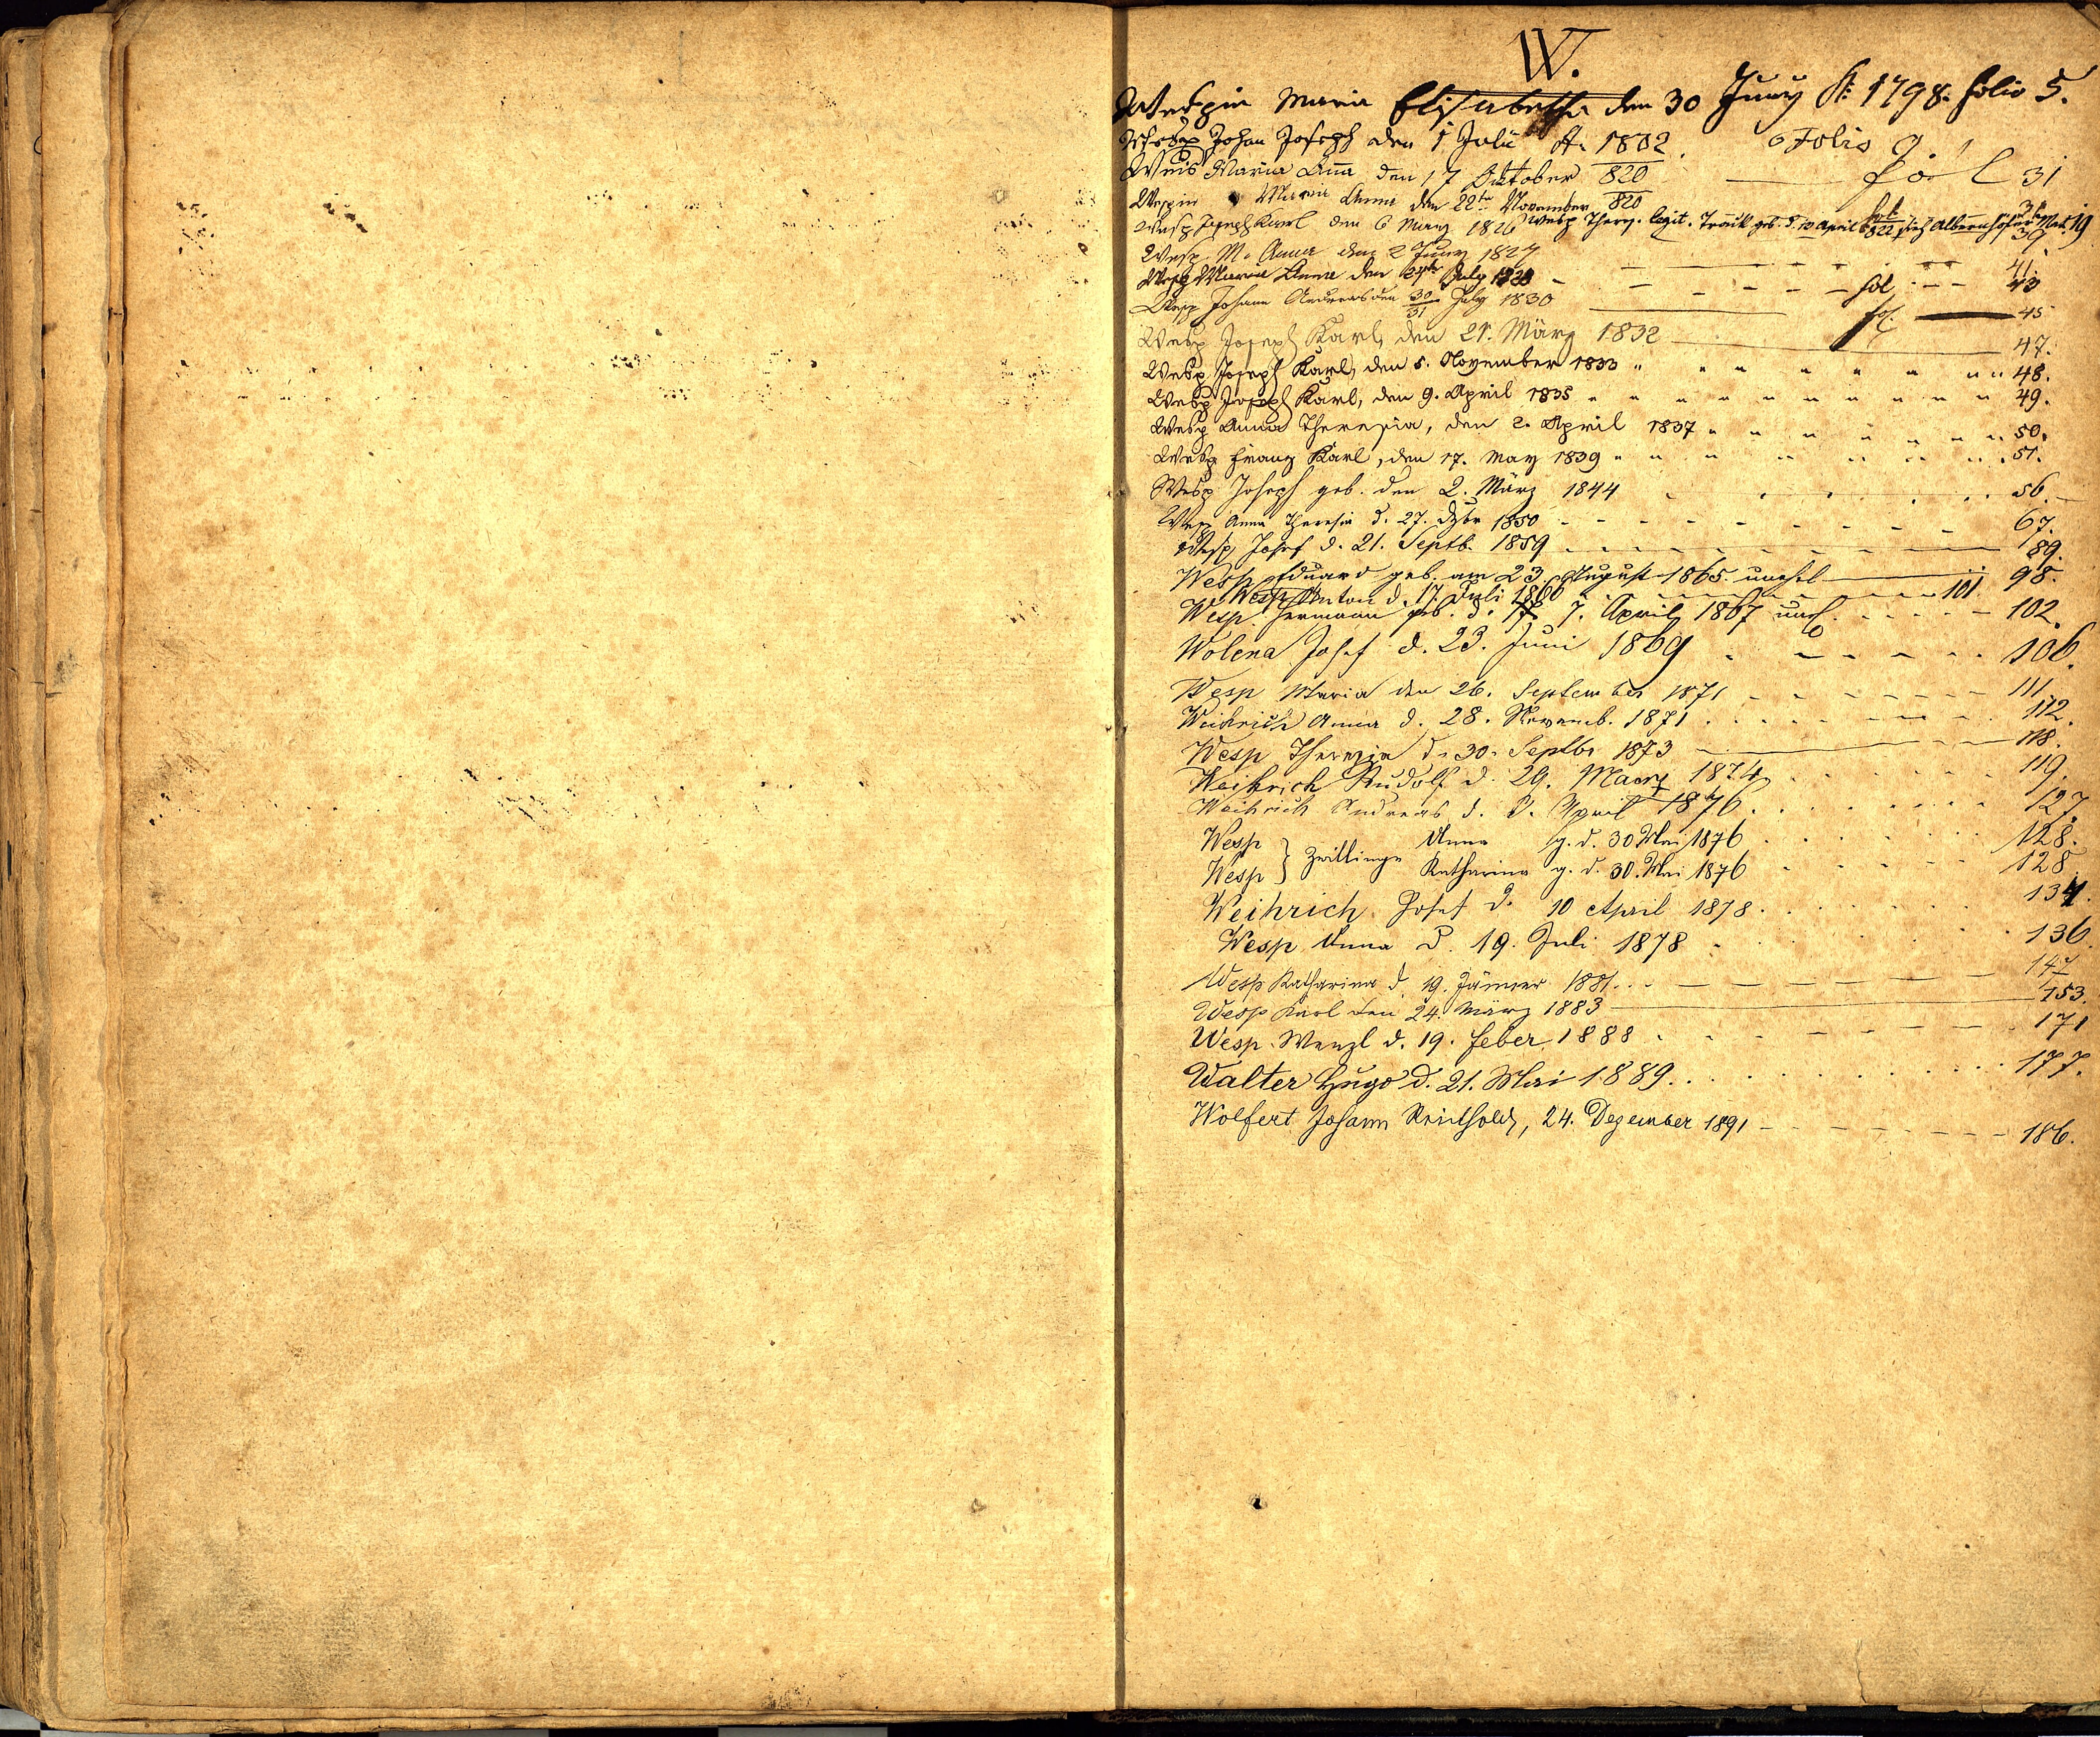 W.
Wespin Maria Elisabetha den 30 Juny A: 1798. folio 5.
Wesp Johan Joseph den 1 Julii A. 1802. Folio 9.
Weis Maria Aña den 17 Oktober 820 fol 31
Wespin Maria Anna den 22ten November 820 fol 31
Wesp Joseph Karl den 6 März 1826 39.
Wesp Theres. legit. geb. d. 10 April 822 sieh Albernhöfer Mat. 19
Wesp M. Anna den 2 Juny 1827 41.
Wesp Maria Anna den July 1828 fol 43
Wesp Johann Andreas den 30/31 July 1830 fol. 45
Wesp Joseph Karl, den 21. März 1832 47.
Wesp Joseph Karl, den 5. November 1833 " " " " " " " 48.
Wesp Joseph Karl, den 9. April 1835 " " " " " " " 49.
Wesp Anna Theresia, den 2. April 1837 " " " " " " 50.
Wesp Franz Karl, den 17. May 1839 " " " " " " 51.
Wesp Joseph geb. den 2. März 1844 56.
Wesp Anna Theresia d. 27. 1850 67.
Wesp Josef d. 21. Septb. 1859 89.
Wesp Eduard geb. am 23. August 1865. unehel 98.
Wesp Anton d. 17. Juli 1866 101
Wesp Hermann geb. d. 7. April 1867 unehl. 102.
Wolena Josef d. 23. Juni 1869 106.
Wesp Maria den 26. September 1871 111.
Weihrich Anna d. 28. Novemb. 1871 112.
Wesp Theresia d. 30. Septbr 1873 118.
Weihrich Rudolf d. 29. Maerz 1874 119.
Weihrich Andreas d. April 1876 127.
Wesp } Zwillinge Anna g. d. 30 Mai 1876 128.
Wesp } Katharina g. d. 30. Mai 1876 128
Weihrich Josef d. 10 April 1878 134.
Wesp Anna d. 19. Juli 1878 136
Wesp Katharina d. 19. Jänner 1881 147
Wesp Karl den 24. März 1883 153.
Wesp Wenzl d. 19. Feber 1888 171
Walter Hugo d. 21. Mai 1889 177.
Wolfert Johann Reinhold, 24. Dezember 1891 186.